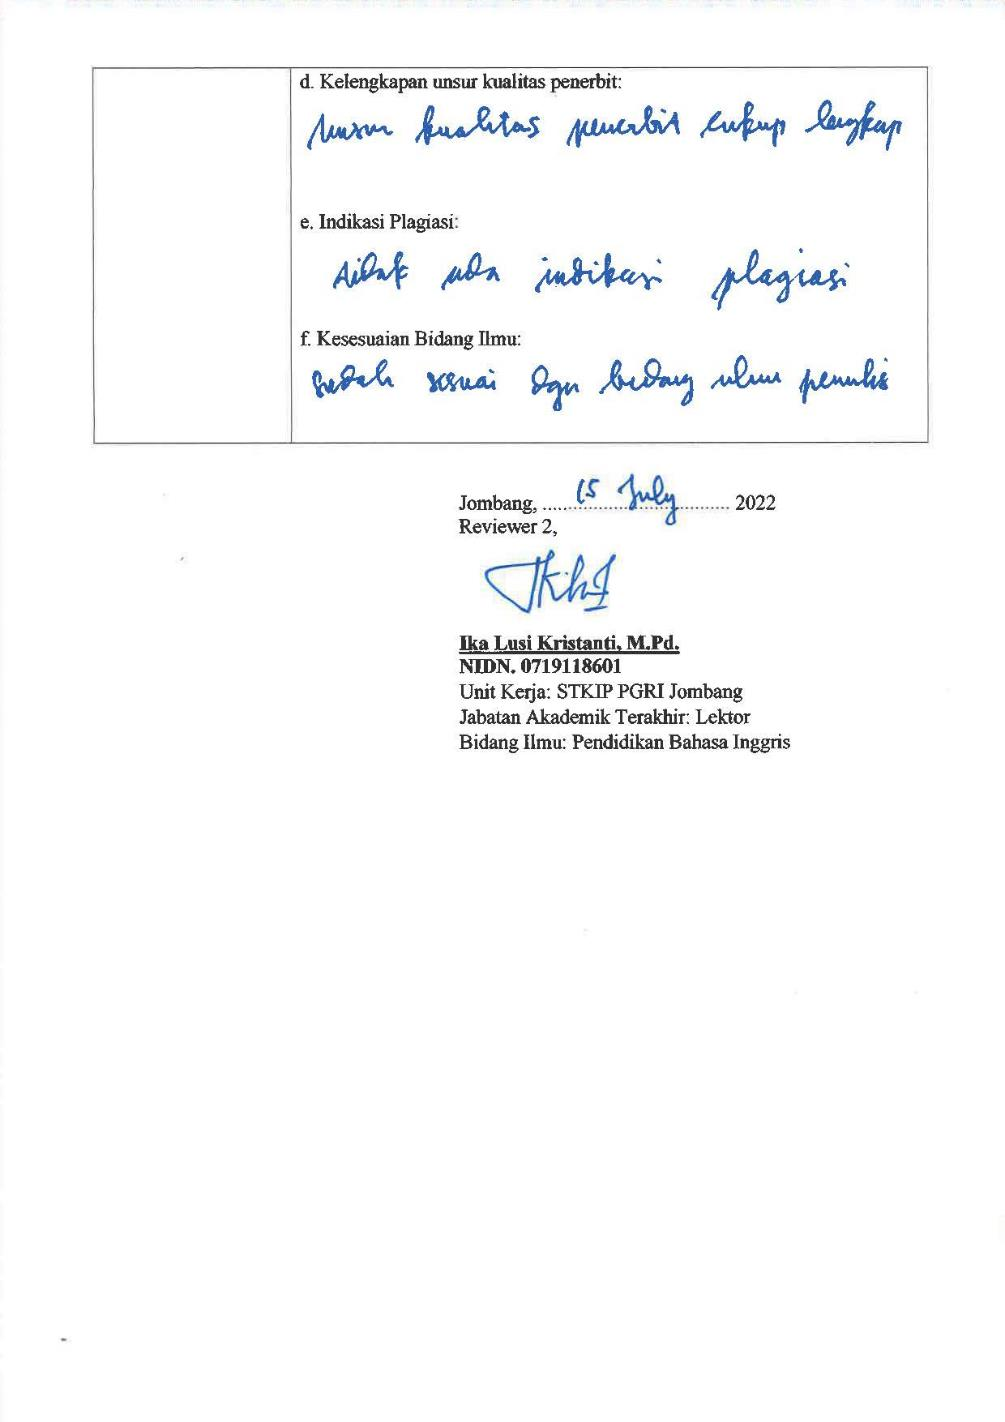 d. Kelengkapan unsur kualitas penerbit:
Unsur kualitas penerbit cukup lengkap
e. Indikasi Plagiasi:
tidak ada indikasi plagiasi
f. Kesesuaian Bidang Ilmu:
sudah sesuai dgn bidang ilmu penulis
Jombang, ..... 15 July ..... 2022
Reviewer 2,
Ika Lusi Kristanti, M.Pd.
NIDN. 0719118601
Unit Kerja: STKIP PGRI Jombang
Jabatan Akademik Terakhir: Lektor
Bidang Ilmu: Pendidikan Bahasa Inggris